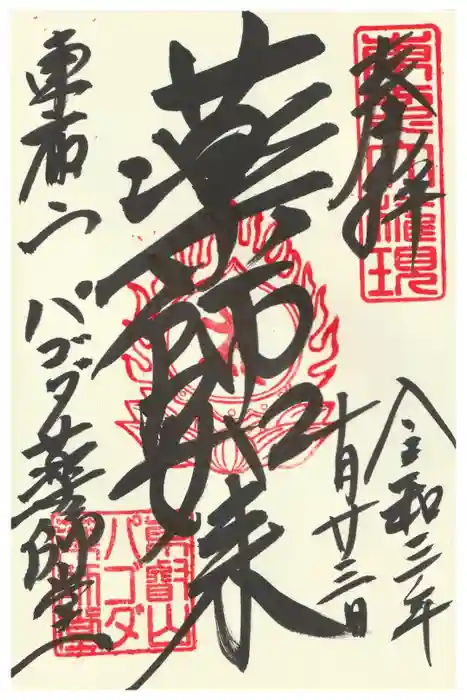 奉拝
東照大権現
令和三年
十月廿三日
薬師如来
東叡山 パゴダ薬師堂
東叡山
パゴダ
薬師堂